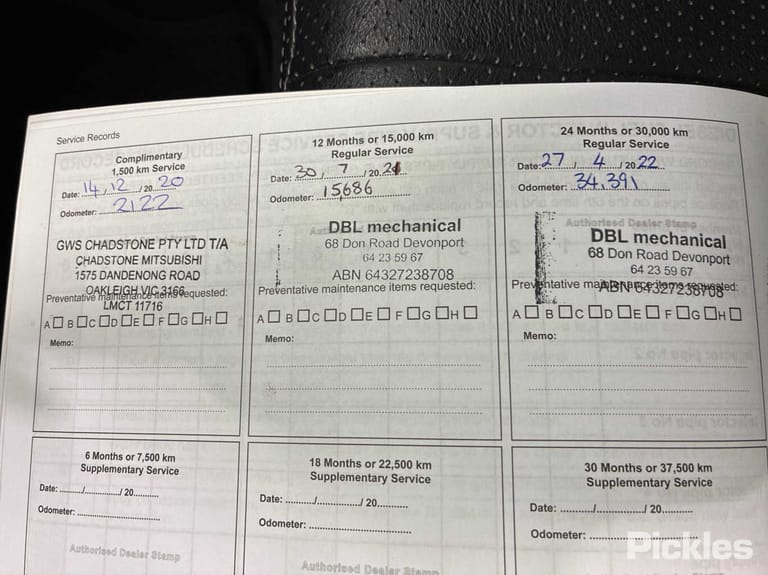 Service Records
Complimentary
1,500 km Service
Date: 14 / 12 / 20 20
Odometer: 2122
GWS CHADSTONE PTY LTD T/A
CHADSTONE MITSUBISHI
1575 DANDENONG ROAD
OAKLEIGH VIC 3166
LMCT 11716
Preventative maintenance items requested:
A B C D E F G H
Memo:
12 Months or 15,000 km
Regular Service
Date: 30 / 7 / 20 21
Odometer: 15,686
DBL mechanical
68 Don Road Devonport
64 23 59 67
ABN 64327238708
Preventative maintenance items requested:
A B C D E F G H
Memo:
24 Months or 30,000 km
Regular Service
Date: 27 / 4 / 20 22
Odometer: 34,391
Authorised Dealer Stamp
DBL mechanical
68 Don Road Devonport
64 23 59 67
ABN 64327238708
Preventative maintenance items requested:
A B C D E F G H
Memo:
6 Months or 7,500 km
Supplementary Service
Date: ........./............../ 20..........
Odometer: ................................
Authorised Dealer Stamp
18 Months or 22,500 km
Supplementary Service
Date: ........./............../ 20..........
Odometer: ................................
Authorised Dealer Stamp
30 Months or 37,500 km
Supplementary Service
Date: ........./............../ 20..........
Odometer: ................................
Pickles